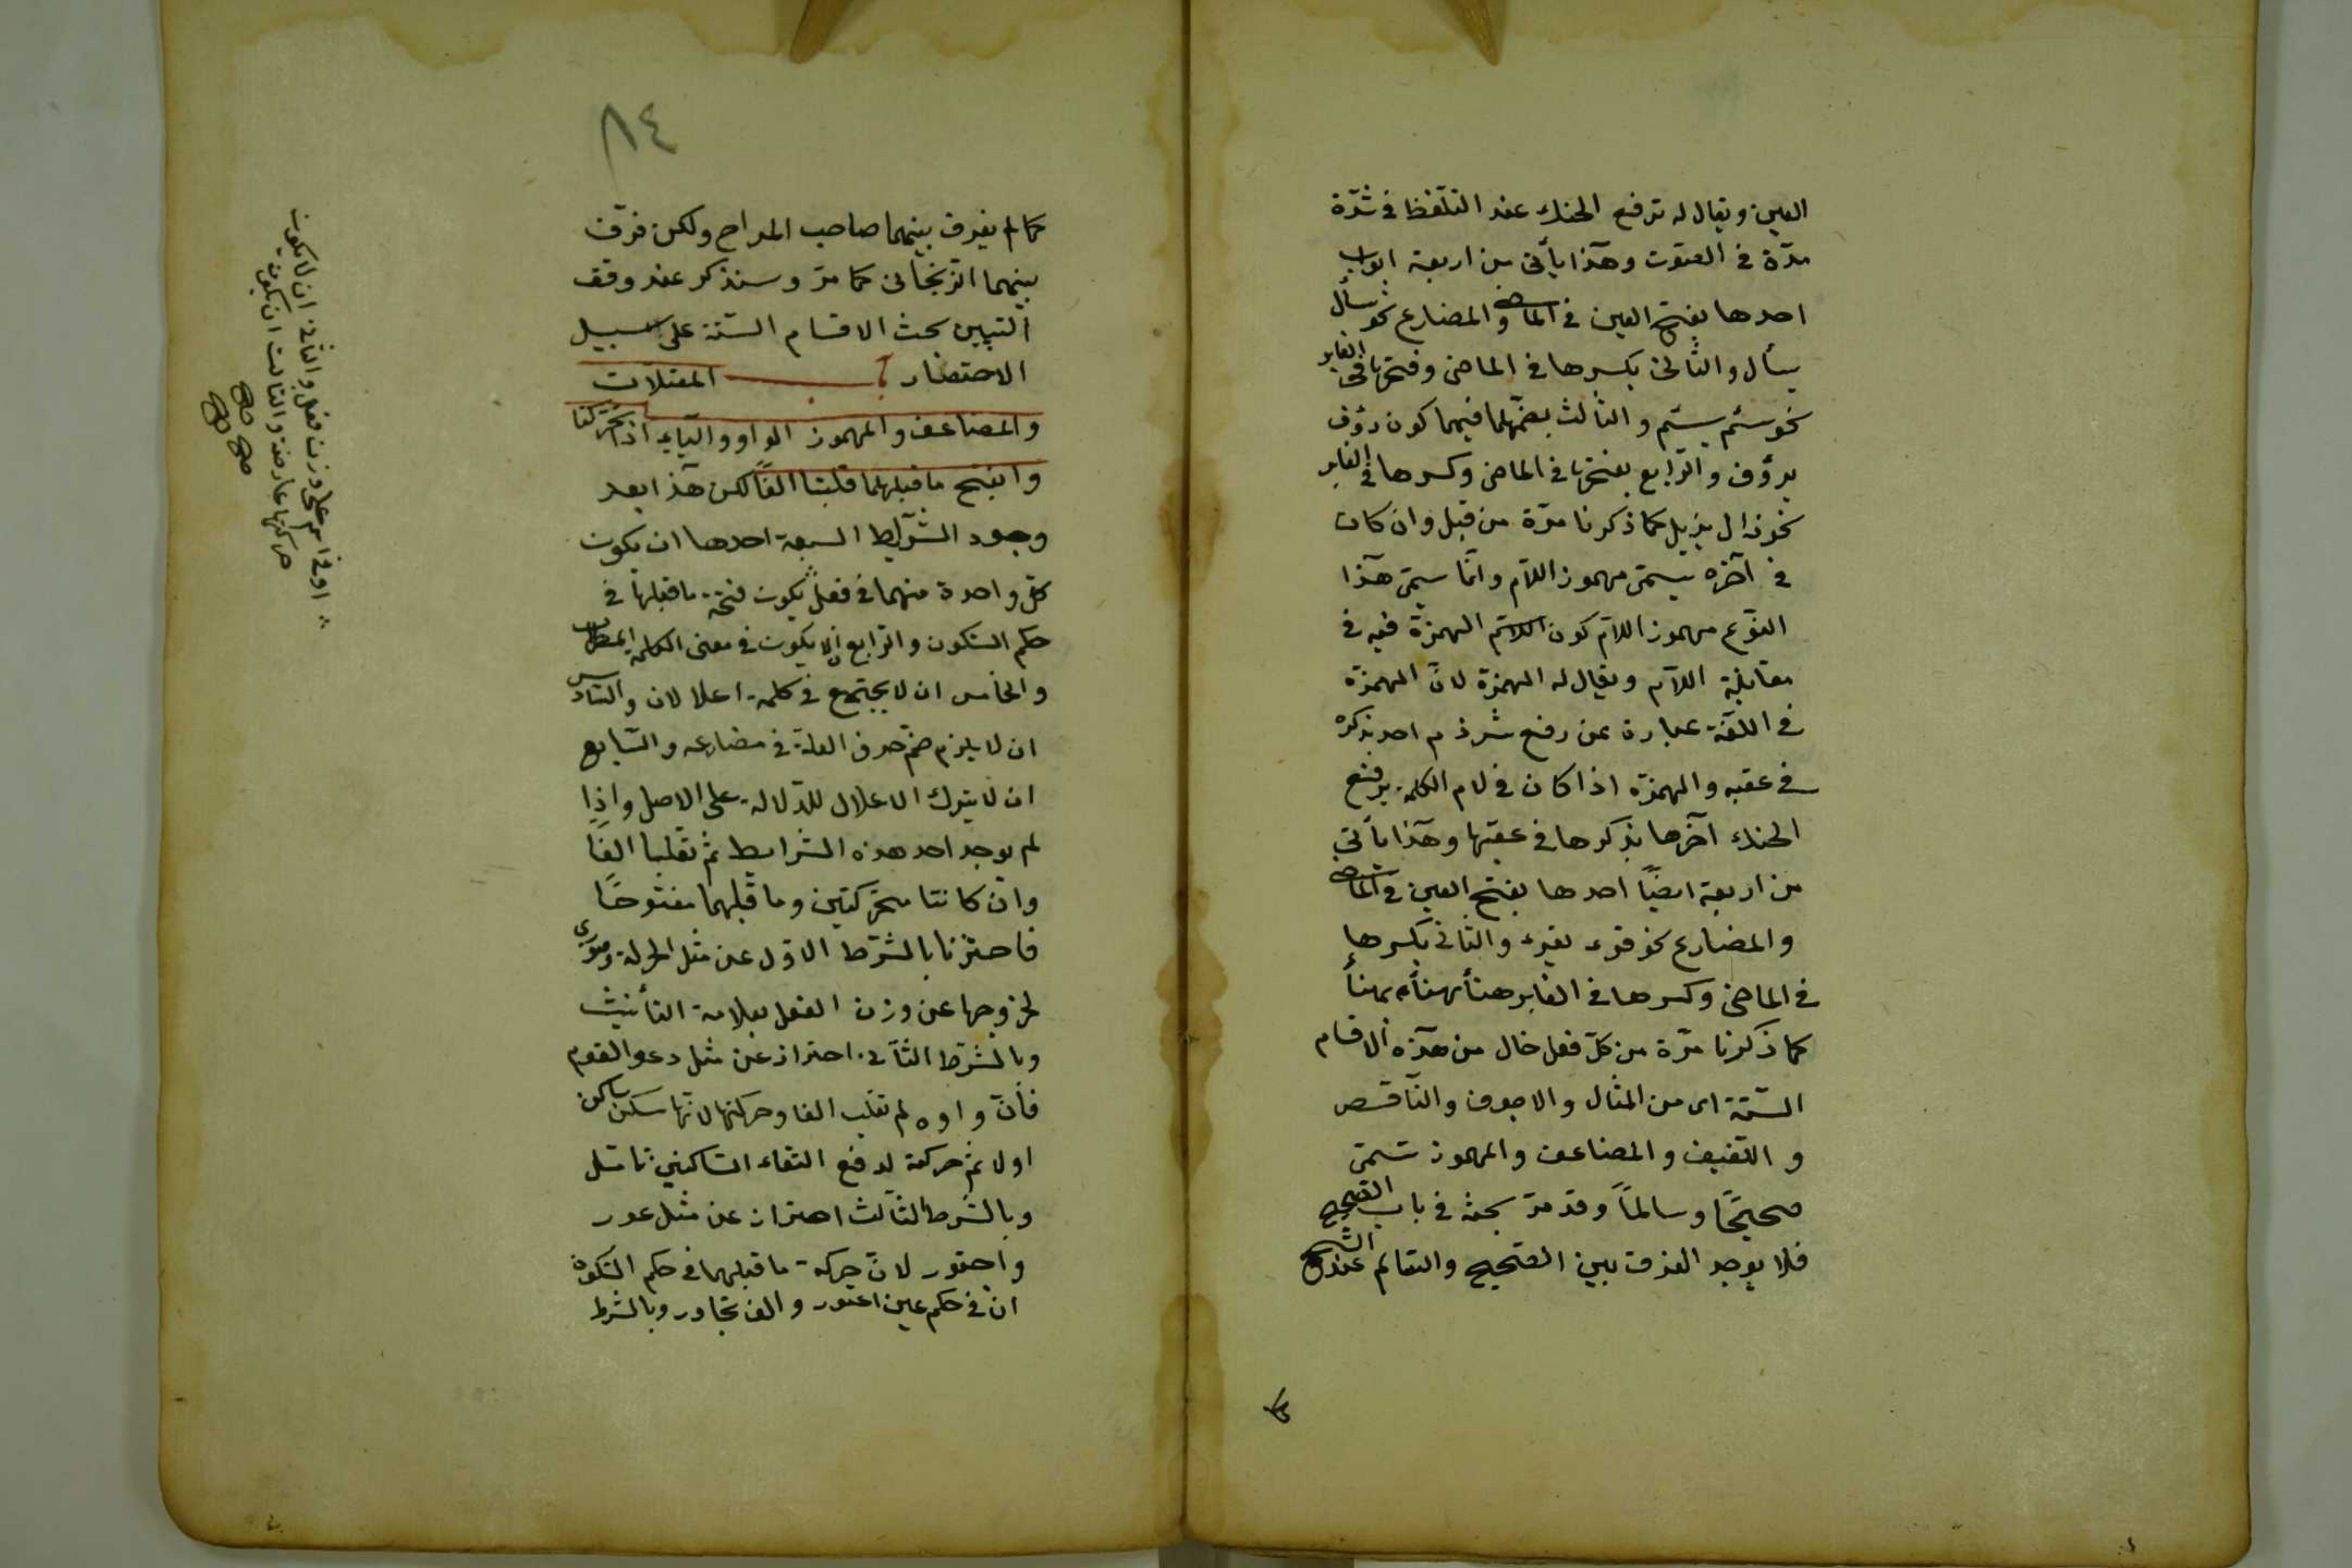 العين ويقال له ترفع الحنك عند التلفظ في شدّة
مدّة في الصّوت وهذا يأتي من اربعة ابواب
احدها بفتح العين في الماضي والمضارع نحو سأل
يسأل والثّاني بكسرها في الماضي وفتحها في الغابر
نحو سئم يسئم والثالث بضمّهما فيهما كون رؤف
يرؤف والرّابع بفتحها في الماضي وكسرها في الغابر
نحو زال يزيل كما ذكرنا مرّة من قبل وان كان
في آخره يسمّى مهموز اللّام وانّما سمّي هذا
النّوع مهموز اللّام كون الهمزة فيه في
مقابلة اللّام ويقال له الهمزة لانّ الهمزة
في اللّغة عبارة عن رفع احد بذكره
في عقبه والهمزة اذا كان في لام الكلمة يرفع
الحنك آخرها بذكرها في عقبها وهذا يأتي
من اربعة ايضًا احدها بفتح العين في الماضي
والمضارع نحو قرء يقرء والثاني بكسرها
في الماضي وكسرها في الغابر هنأ يهنأ
كما ذكرنا مرّة من كلّ فعل خال من هذه الاقسام
السّتة اى من المثال والاجوف والنّاقص
و اللّفيف والمضاعف والمهموز تسمّى
صحيحًا وسالمًا وقد مرّ بحثه في باب الصّحيح
فلا يوجد الفرق بين الصّحيح والسّالم عند الشيخ
٨٤
كما لم يفرق بينهما صاحب المراح ولكن فرّق
بينهما الزّنجاني كما مرّ وسنذكر عند وقف
التبيين بحث الاقسام السّتة على سبيل
الاختصار المعتلات
والمضاعف والمهموز الواو والياء اذا تحركتا
وانفتح ما قبلهما قلبتا الفًا لكن هذا بعد
وجود الشّرايط السبعة احدها ان يكون
كلّ واحدة منهما في فعل يكون فتحة ما قبلها في
حكم السّكون والرّابع ان لا يكون في معنى الكلمة اضطراب
والخامس ان لا يجتمع في كلمة اعلالان والسّادس
ان لا يلزم ضمّ حرف العلة في مضارعه والسّابع
ان لا يترك الاعلال للدّلالة على الاصل واذا
لم يوجد احد هذه الشّرايط ثم تقلبا الفًا
وان كانتا متحرّكتين وما قبلهما مفتوحًا
فاحترزنا بالشّرط الاوّل عن مثل وصورى
لخروجها عن وزن الفعل بعلامة التأنيث
وبالشّرط الثّاني احتراز عن مثل دعوا القوم
فانّ واوه لم تقلب الفا وحركتها لانها ساكن
اولا ثم حركة لدفع التقاء السّاكنين تأمّل
وبالشّرط الثّالث احتراز عن مثل عور
واجتور لانّ حركة ما قبلهما في حكم السّكون
ان في حكم عين اعور والف تجاور وبالشّرط
او في اسم على وزن فعل والثّاني ان لا يكون
حركتها عارضة والثالث ان يكون
صح صح